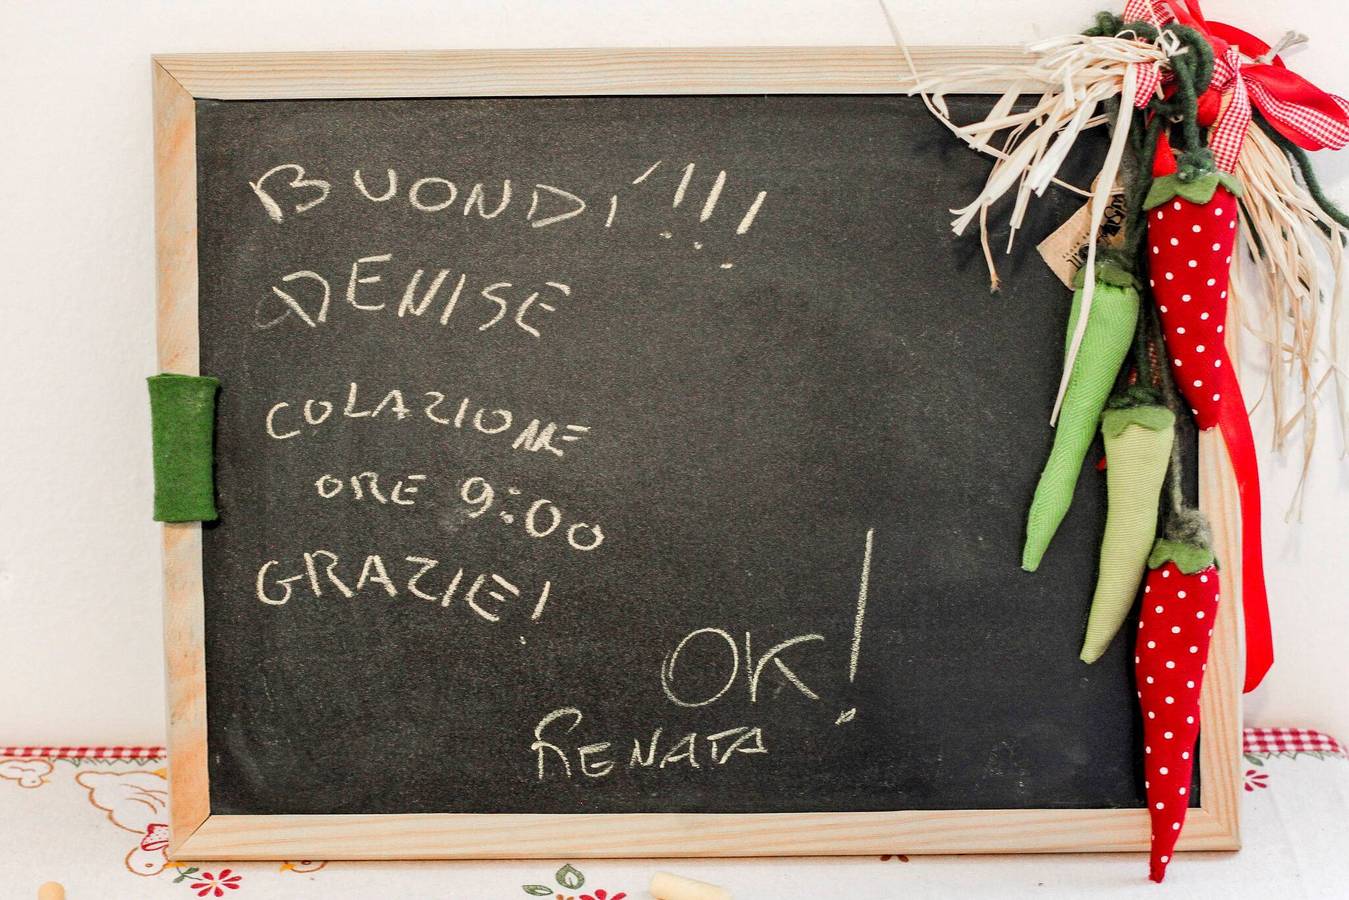 BUONDÍ!!!
DENISE
COLAZIONE
ORE 9:00
GRAZIE!
OK!
RENATA